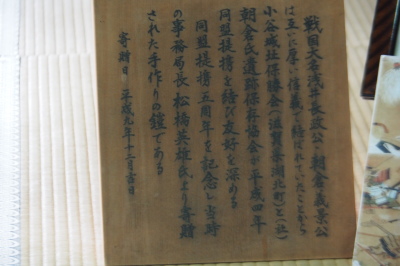 戦国大名浅井長政公と朝倉義景公
は互いに厚い信義で結ばれていたことから
小谷城址保勝会(滋賀県湖北町)と(社)
朝倉氏遺跡保存協会が平成四年
同盟提携を結び友好を深める
同盟提携五周年を記念し当時
の事務局長松橋英雄氏より寄贈
された手作りの鎧である
寄贈日 平成九年十二月吉日